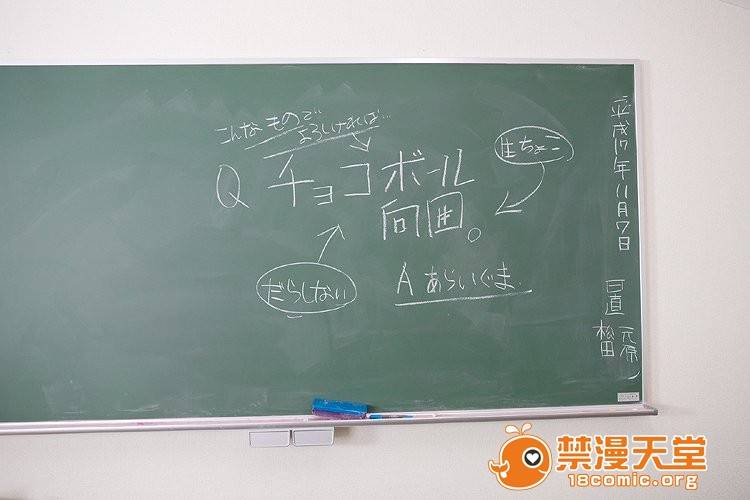 こんなもので
よろしければ…
Q チョコボール
向囲。
生ちょこ
だらしない
A あらいぐま
平成17年11月7日
日直
松田
元原
禁漫天堂
18comic.org